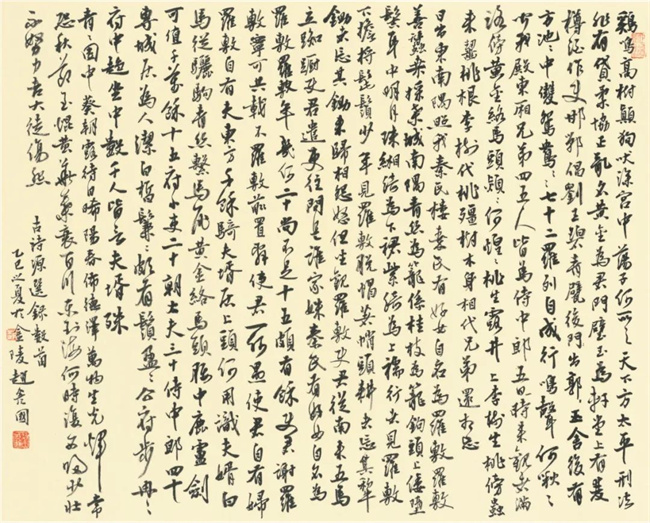 雞鳴高樹顛狗吠深宮中蕩子何所之天下方太平刑法
非有貸柔協正亂名黃金為君門璧玉為軒堂上有雙
樽酒作使邯鄲倡劉王碧青甓後門出郭王舍後有
方池〻中雙鴛鴦〻〻七十二羅列自成行鳴聲何啾〻
聞我殿東廂兄弟四五人皆為侍中郎五日時來觀者滿
路傍黃金絡馬頭熲〻何煌〻桃生露井上李樹生桃傍蟲
來齧桃根李樹代桃殭樹木身相代兄弟還相忘
日出東南隅照我秦氏樓秦氏有好女自名為羅敷羅敷
善蠶桑採桑城南隅青絲為籠係桂枝為籠鉤頭上倭墮
髻耳中明月珠緗綺為下裙紫綺為上襦行者見羅敷
下擔捋髭鬚少年見羅敷脫帽著帩頭耕者忘其犁
鋤者忘其鋤來歸相怨怒但坐觀羅敷使君從南來五馬
立踟躕使君遣吏往問是誰家姝秦氏有好女自名為
羅敷羅敷年幾何二十尚不足十五頗有餘使君謝羅
敷寧可共載不羅敷前置辭使君一何愚使君自有婦
羅敷自有夫東方千餘騎夫婿居上頭何用識夫婿白
馬從驪駒青絲繫馬尾黃金絡馬頭腰中鹿盧劍
可值千萬餘十五府小吏二十朝大夫三十侍中郎四十
專城居為人潔白皙鬑〻頗有鬚盈〻公府步冉〻
府中趨坐中數千人皆言夫婿殊
青〻園中葵朝露待日晞陽春布德澤萬物生光輝常
恐秋節至焜黃華葉衰百川東到海何時復西歸少壯
不努力老大徒傷悲
古詩源選錄數首
乙巳之夏於金陵趙國